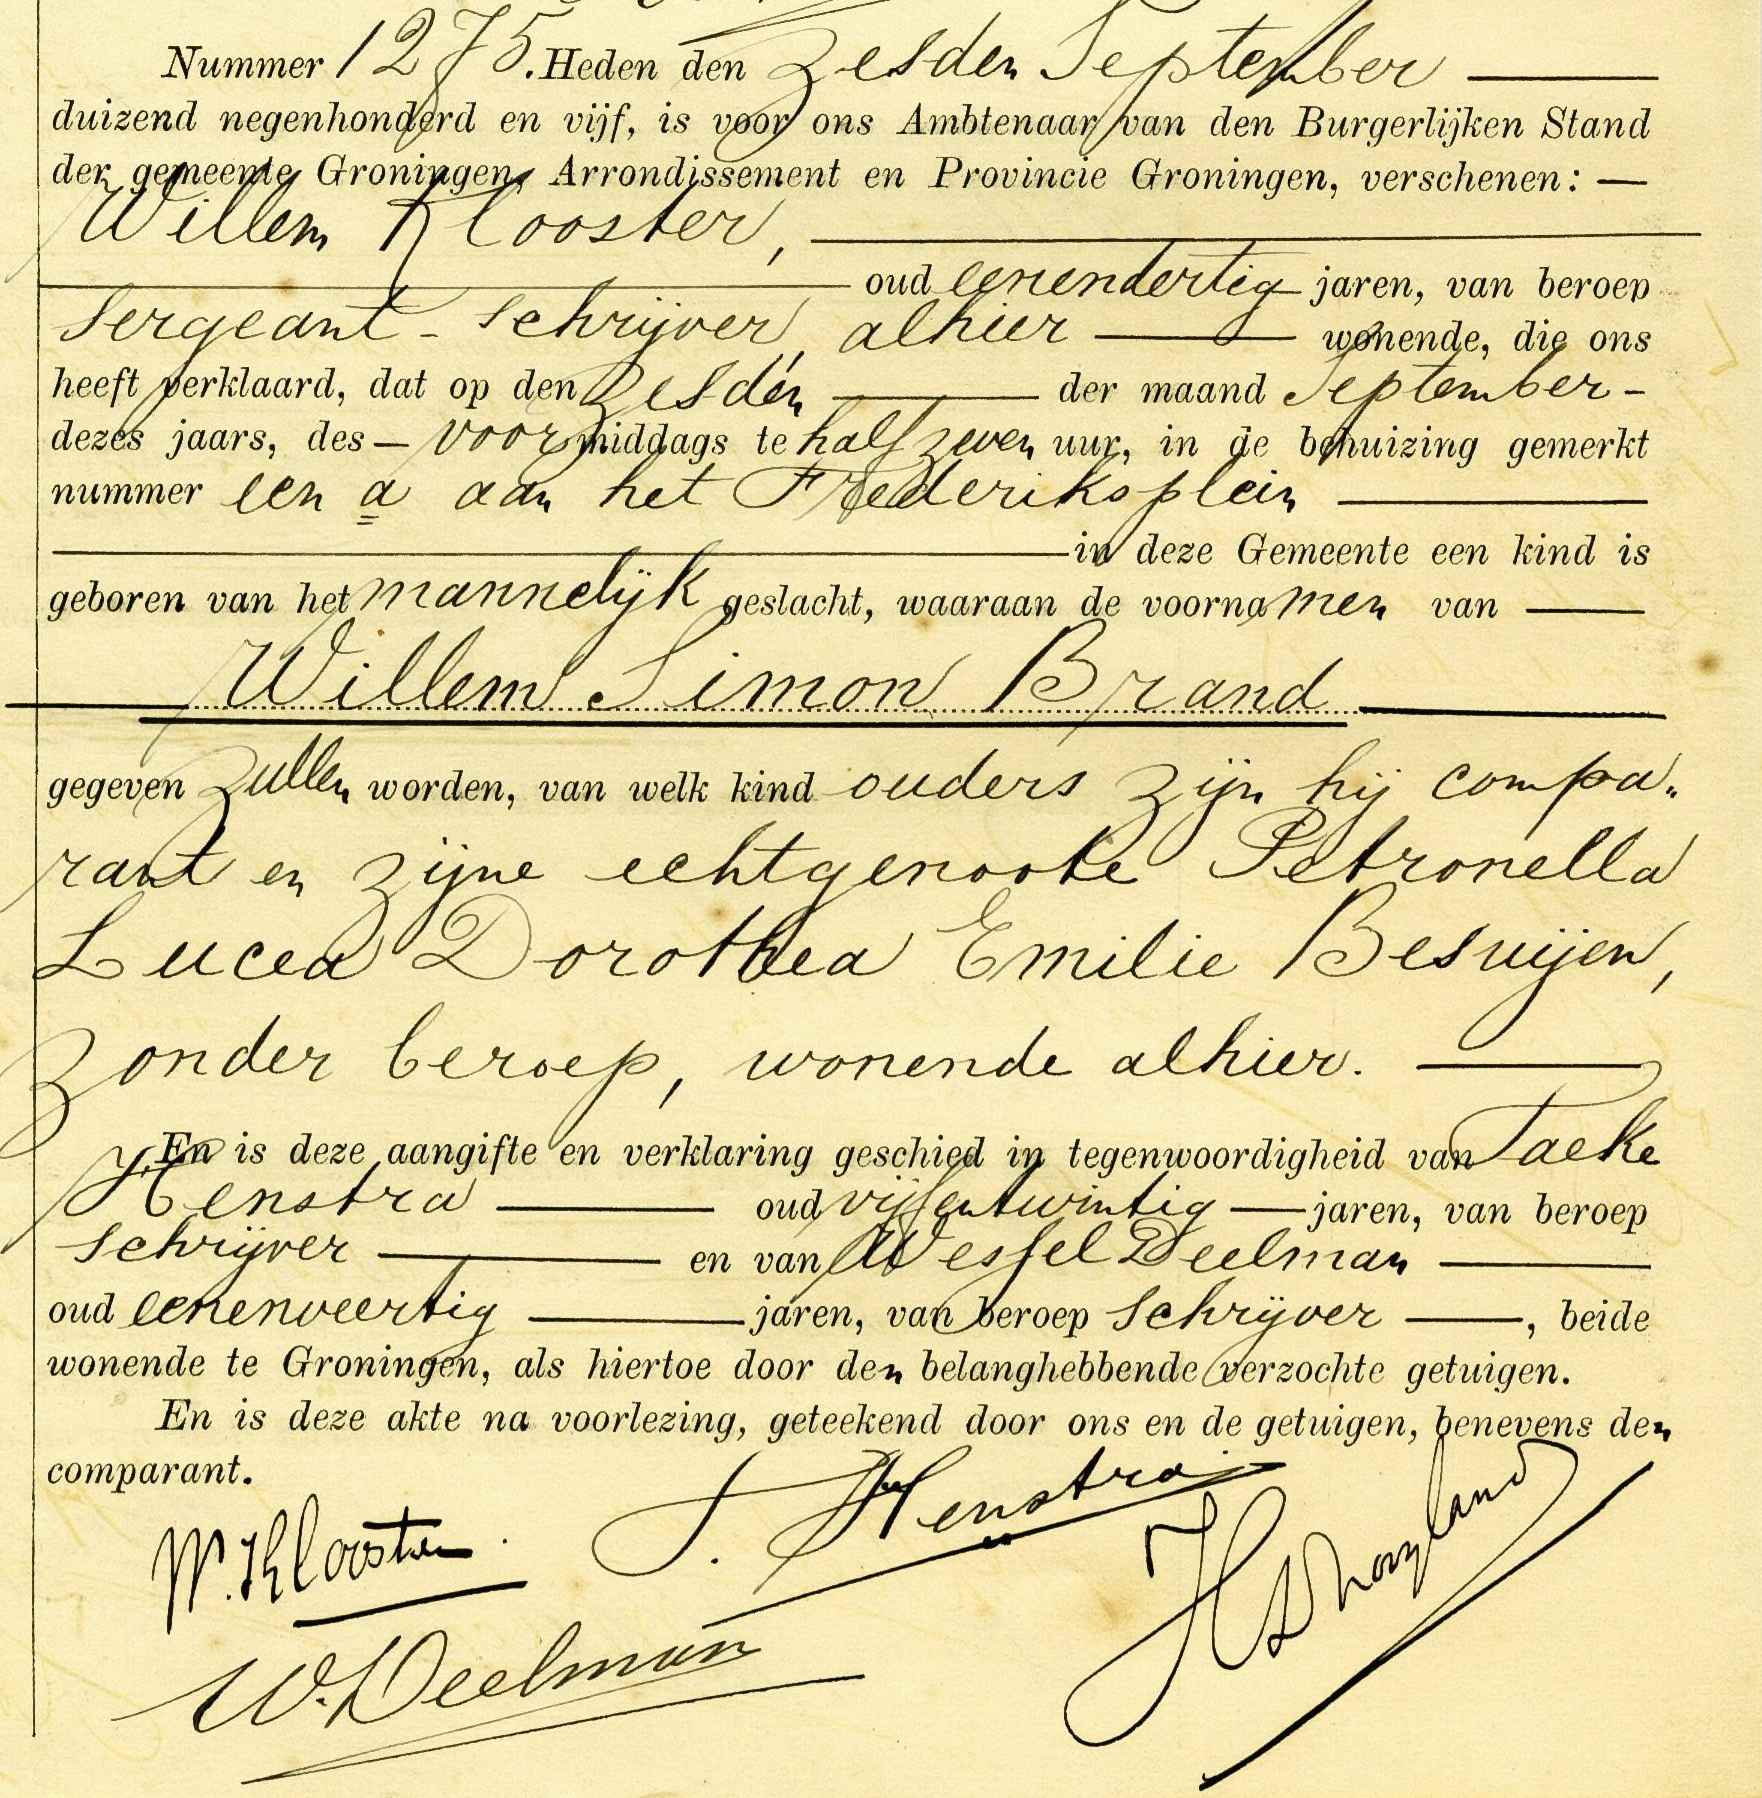 Nummer 1275. Heden den zesden September
duizend negenhonderd en vijf, is voor ons Ambtenaar van den Burgerlijken Stand
der gemeente Groningen, Arrondissement en Provincie Groningen, verschenen:
Willem Klooster,
oud eenendertig jaren, van beroep
sergeant-schrijver, alhier wonende, die ons
heeft verklaard, dat op den zesden der maand September
dezes jaars, des voormiddags te half zeven uur, in de behuizing gemerkt
nummer een a aan het Frederiksplein
in deze Gemeente een kind is
geboren van het mannelijk geslacht, waaraan de voornamen van
Willem Simon Brand
gegeven zullen worden, van welk kind ouders zijn hij compa"
rant en zijne echtgenoote Petronella
Lucea Dorothea Emilie Besuijen,
zonder beroep, wonende alhier.
En is deze aangifte en verklaring geschied in tegenwoordigheid van Taeke
Henstra oud vijfentwintig jaren, van beroep
schrijver en van Wessel Deelman
oud eenenveertig jaren, van beroep schrijver, beide
wonende te Groningen, als hiertoe door den belanghebbende verzochte getuigen.
En is deze akte na voorlezing, geteekend door ons en de getuigen, benevens den
comparant.
W. Klooster.
J. Henstra
W. Deelman